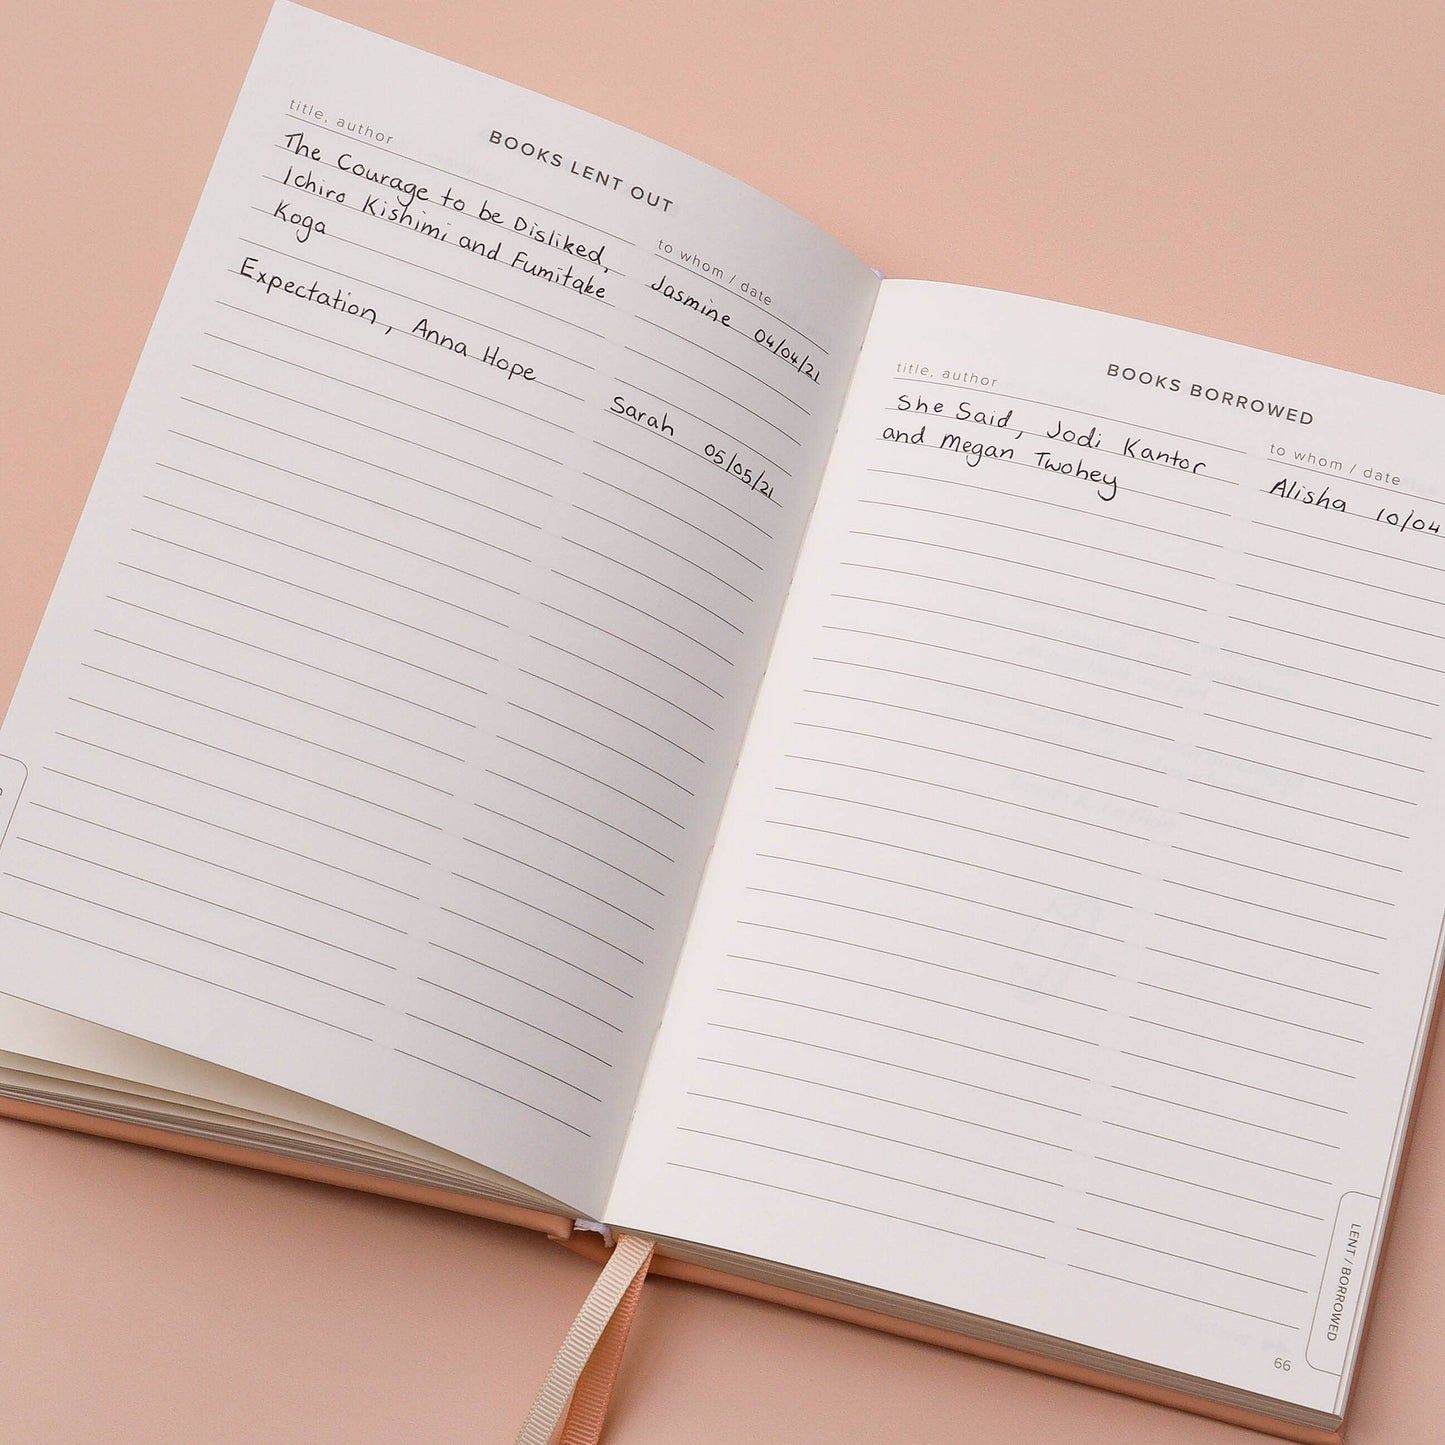 BOOKS LENT OUT
title, author
to whom / date
The Courage to be Disliked,
Ichiro Kishimi and Fumitake
Koga
Jasmine 04/04/21
Expectation, Anna Hope
Sarah 05/05/21
BOOKS BORROWED
title, author
to whom / date
She Said, Jodi Kantor
and Megan Twohey
Alisha 10/04
LENT / BORROWED
66